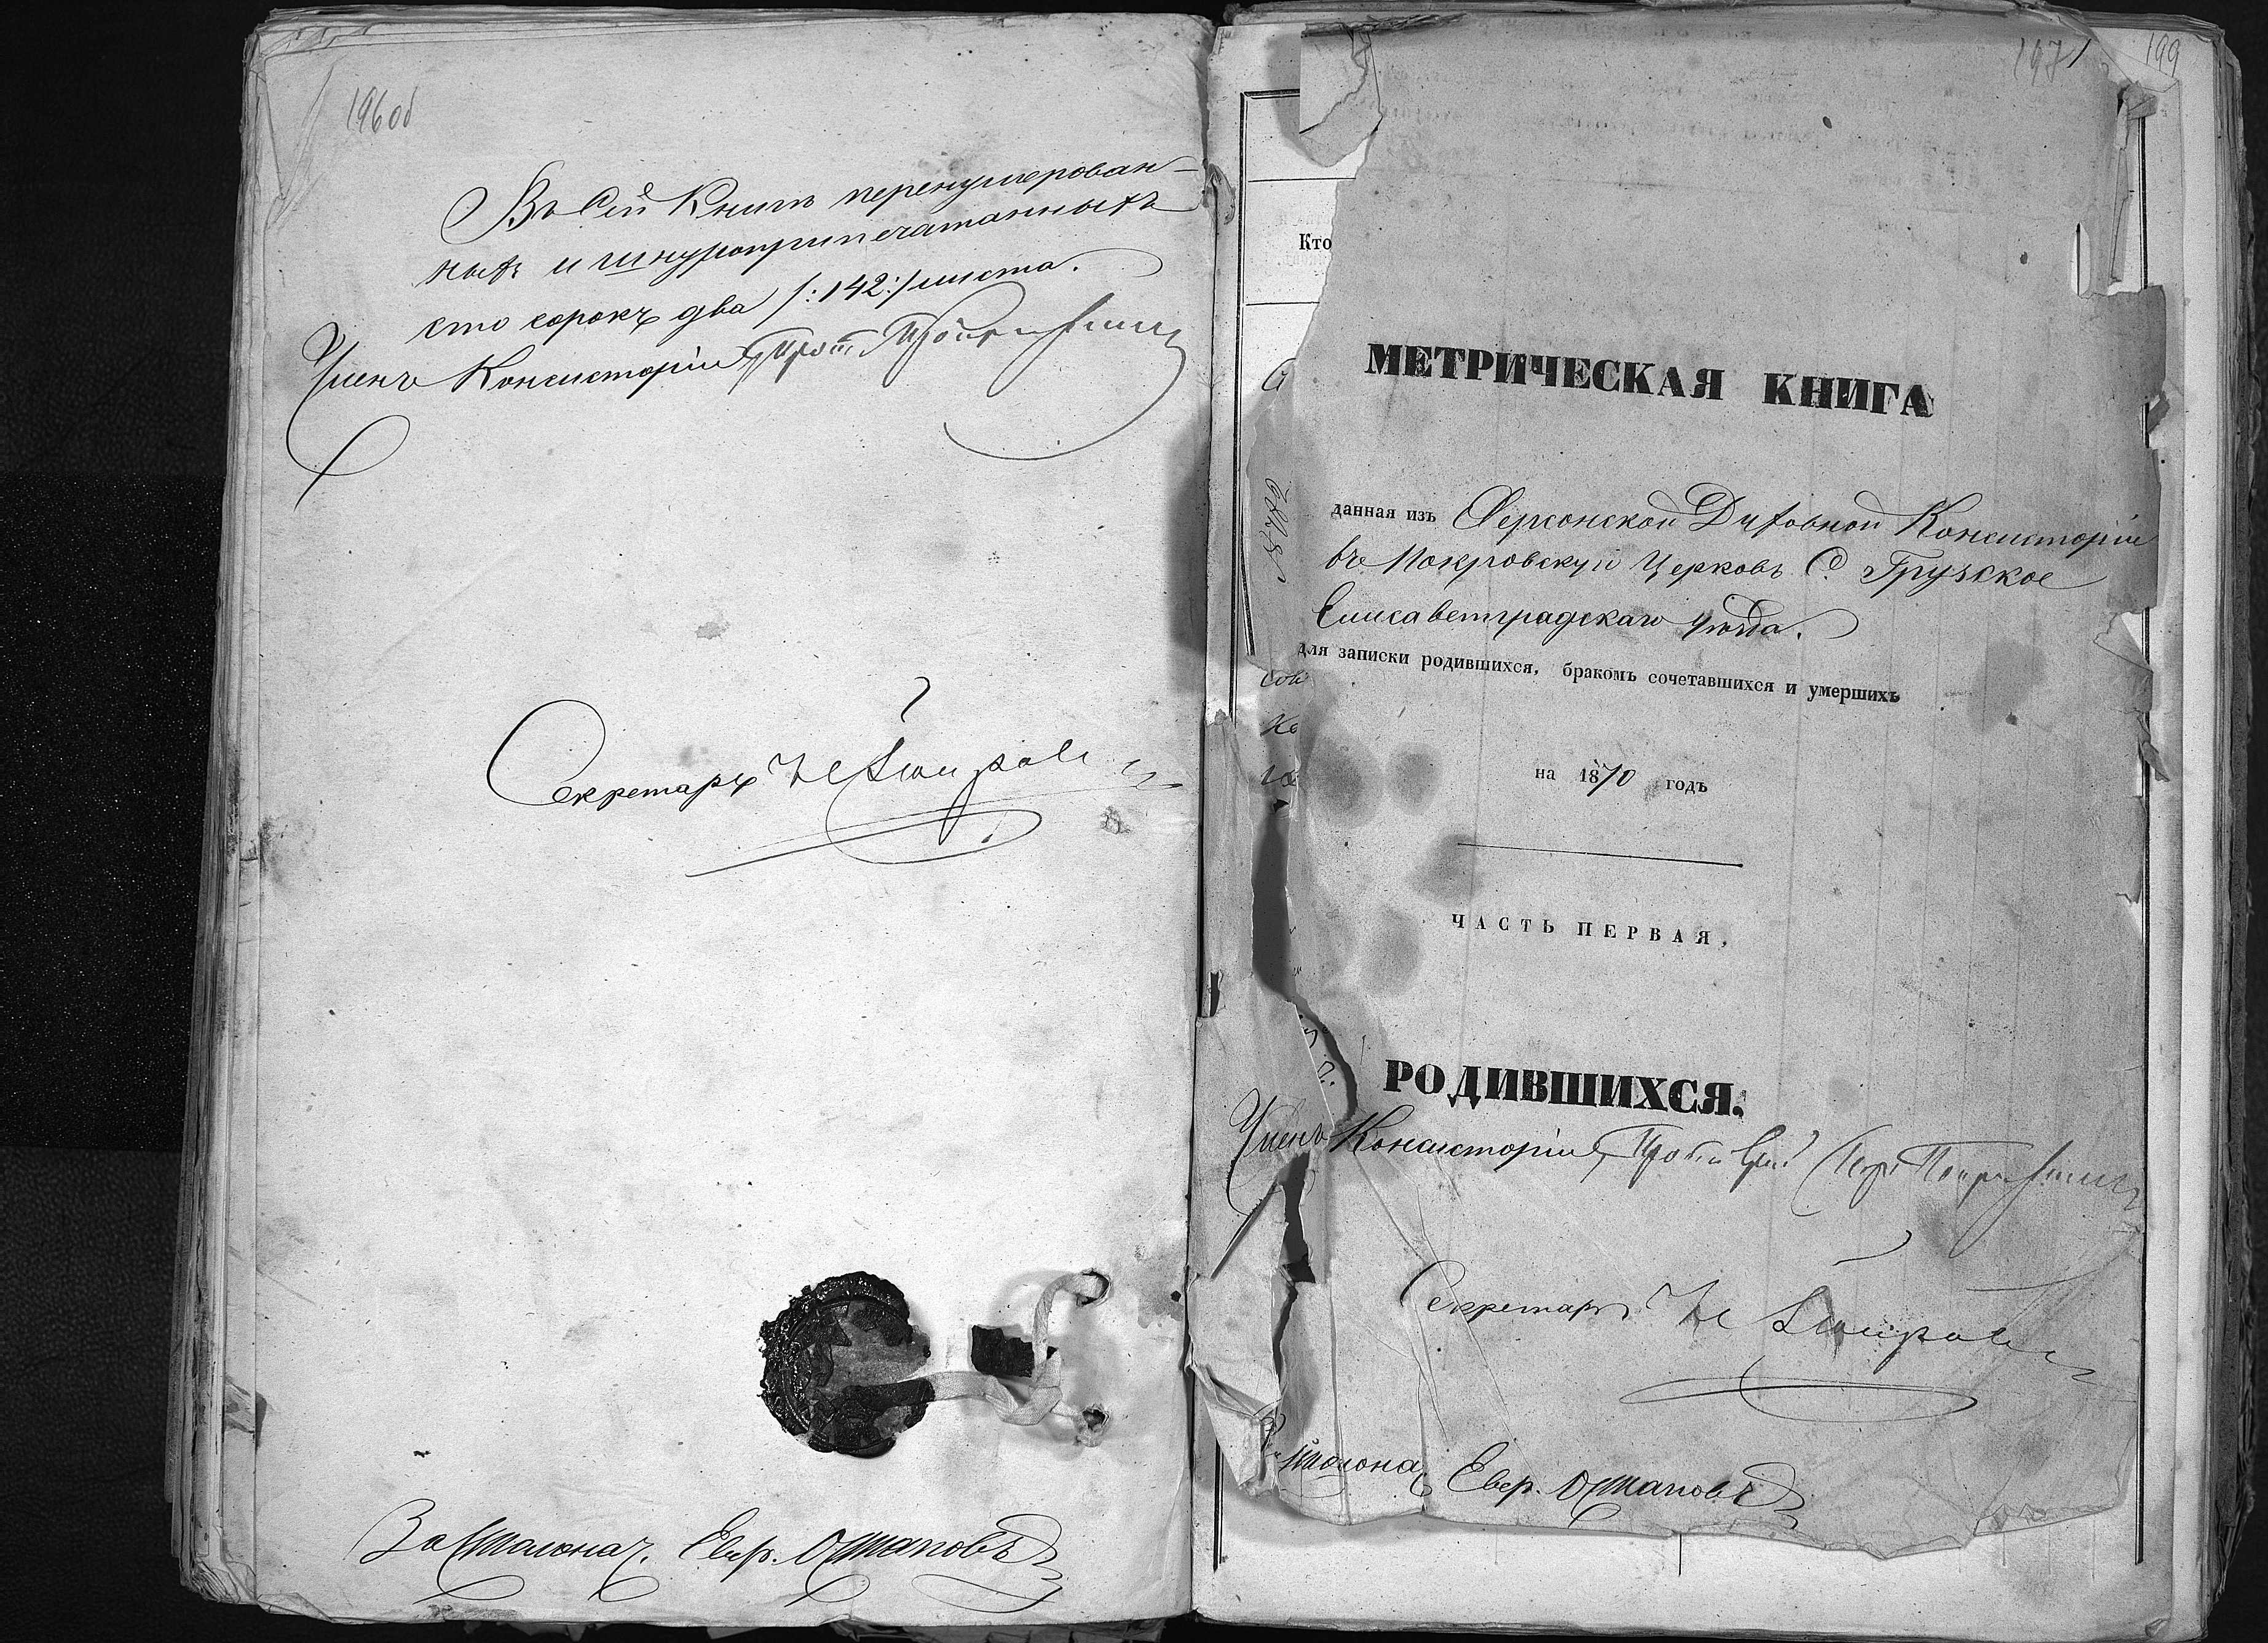 196об
Въ сей Книгѣ перенумерован-
ныхъ и шнуроприпечатанныхъ
сто сорокъ два /:142:/ листа.
Членъ Консисторіи Прот.
Секретарь
За Столонач. Евгр. Остаповъ
197
199
Кто
МЕТРИЧЕСКАЯ КНИГА
данная изъ Херсонской Духовной Консисторіи
въ Покровскую Церковь С. Грузское
Елисаветградскаго уѣзда.
для записки родившихся, бракомъ сочетавшихся и умершихъ
на 1870 годъ
ЧАСТЬ ПЕРВАЯ,
РОДИВШИХСЯ.
Членъ Консисторіи
Секретарь
Остаповъ